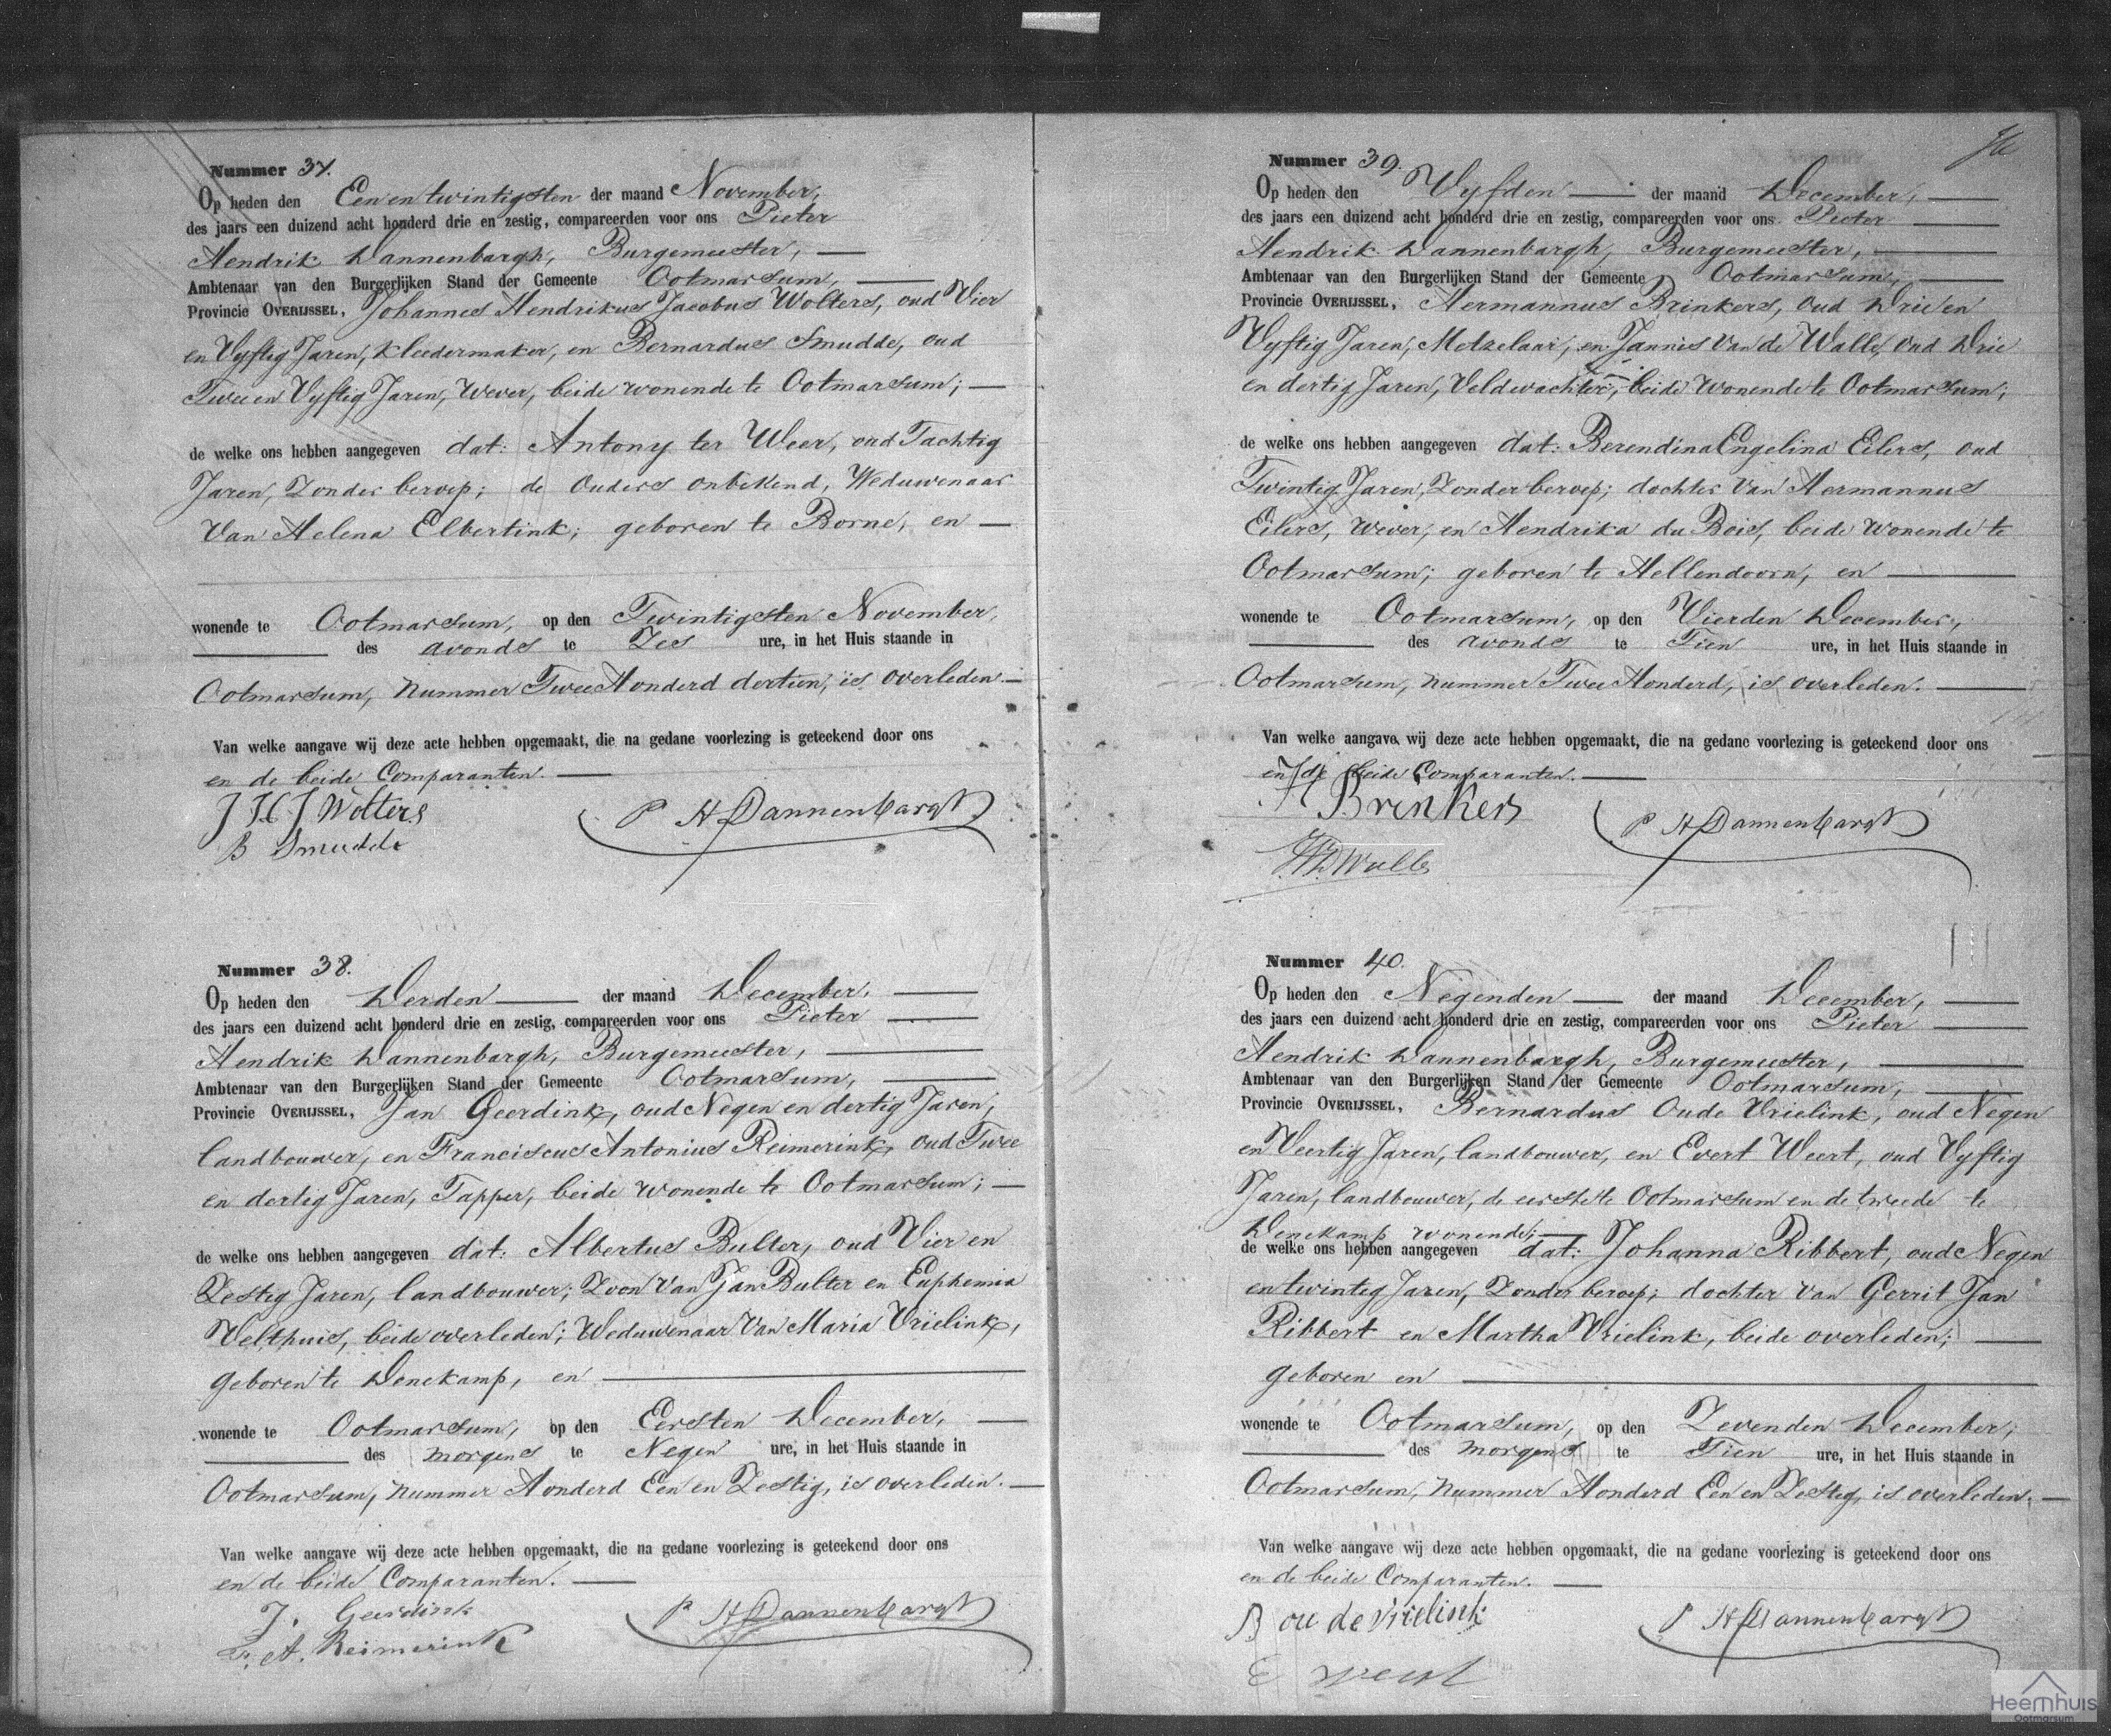 Nummer 37.
Op heden den Een en twintigsten der maand November,
des jaars een duizend acht honderd drie en zestig, compareerden voor ons Pieter
Hendrik Dannenbargh, Burgemeester,
Ambtenaar van den Burgerlijken Stand der Gemeente Ootmarsum,
Provincie OVERIJSSEL, Johannes Hendrikus Jacobus Wolters, oud Vier
en Vyftig Jaren, Kleedermaker, en Bernardus Smudde, oud
Twee en Vyftig Jaren, Wever, beide wonende te Ootmarsum;
de welke ons hebben aangegeven dat: Antony ter Weer, oud Tachtig
Jaren, Zonder beroep; de Ouders onbekend, Weduwenaar
Van Helena Elbertink; geboren te Borne, en
wonende te Ootmarsum, op den Twintigsten November,
des avonds te Zes ure, in het Huis staande in
Ootmarsum, nummer Twee Honderd dertien, is overleden
Van welke aangave wij deze acte hebben opgemaakt, die na gedane voorlezing is geteekend door ons
en de beide Comparanten.
J H J Wolters
P H Dannenbargh
B Smudde
Nummer 38.
Op heden den Derden der maand December,
des jaars een duizend acht honderd drie en zestig, compareerden voor ons Pieter
Hendrik Dannenbargh, Burgemeester,
Ambtenaar van den Burgerlijken Stand der Gemeente Ootmarsum,
Provincie OVERIJSSEL, Jan Geerdink, oud Negen en dertig Jaren,
landbouwer, en Franciscus Antonius Reimerink, oud Twee
en dertig Jaren, Tapper, beide wonende te Ootmarsum;
de welke ons hebben aangegeven dat: Albertus Bulter, oud Vier en
Zestig Jaren, landbouwer; Zoon Van Jan Bulter en Euphemia
Velthuis, beide overleden; Weduwenaar Van Maria Vrielink,
geboren te Denekamp, en
wonende te Ootmarsum, op den Eersten December,
des morgens te Negen ure, in het Huis staande in
Ootmarsum, nummer Honderd Een en Zestig, is overleden.
Van welke aangave wij deze acte hebben opgemaakt, die na gedane voorlezing is geteekend door ons
en de beide Comparanten.
J. Geerdink
P H Dannenbargh
F. A. Reimerink
Nummer 39.
Op heden den Vyfden der maand December,
des jaars een duizend acht honderd drie en zestig, compareerden voor ons Pieter
Hendrik Dannenbargh, Burgemeester,
Ambtenaar van den Burgerlijken Stand der Gemeente Ootmarsum,
Provincie OVERIJSSEL, Hermannus Brinkers, oud Drie en
Vyftig Jaren, Metzelaar, en Jannis Van de Walle, oud Drie
en dertig Jaren, Veldwachter, beide Wonende te Ootmarsum;
de welke ons hebben aangegeven dat: Berendina Engelina Eilers, oud
Twintig Jaren, Zonder beroep; dochter Van Hermannus
Eilers, Wever, en Hendrika du Bois, beide wonende te
Ootmarsum; geboren te Hellendoorn, en
wonende te Ootmarsum, op den Vierden December,
des avonds te Tien ure, in het Huis staande in
Ootmarsum, nummer Twee Honderd, is overleden.
Van welke aangave wij deze acte hebben opgemaakt, die na gedane voorlezing is geteekend door ons
en de beide Comparanten.
H Brinkers
P H Dannenbargh
Walle
Nummer 40.
Op heden den Negenden der maand December,
des jaars een duizend acht honderd drie en zestig, compareerden voor ons Pieter
Hendrik Dannenbargh, Burgemeester,
Ambtenaar van den Burgerlijken Stand der Gemeente Ootmarsum,
Provincie OVERIJSSEL, Bernardus Oude Vrielink, oud Negen
en Veertig Jaren, landbouwer, en Evert Weert, oud Vyftig
Jaren, landbouwer, de eerste te Ootmarsum en de tweede te
Denekamp wonende;
de welke ons hebben aangegeven dat: Johanna Ribbert, oud Negen
en twintig Jaren, Zonder beroep; dochter Van Gerrit Jan
Ribbert en Martha Vrielink, beide overleden;
geboren en
wonende te Ootmarsum, op den Zevenden December,
des morgens te Tien ure, in het Huis staande in
Ootmarsum, nummer Honderd Een en Zestig, is overleden.
Van welke aangave wij deze acte hebben opgemaakt, die na gedane voorlezing is geteekend door ons
en de beide Comparanten.
B oude vrielink
P H Dannenbargh
E weert
Heemhuis
Ootmarsum